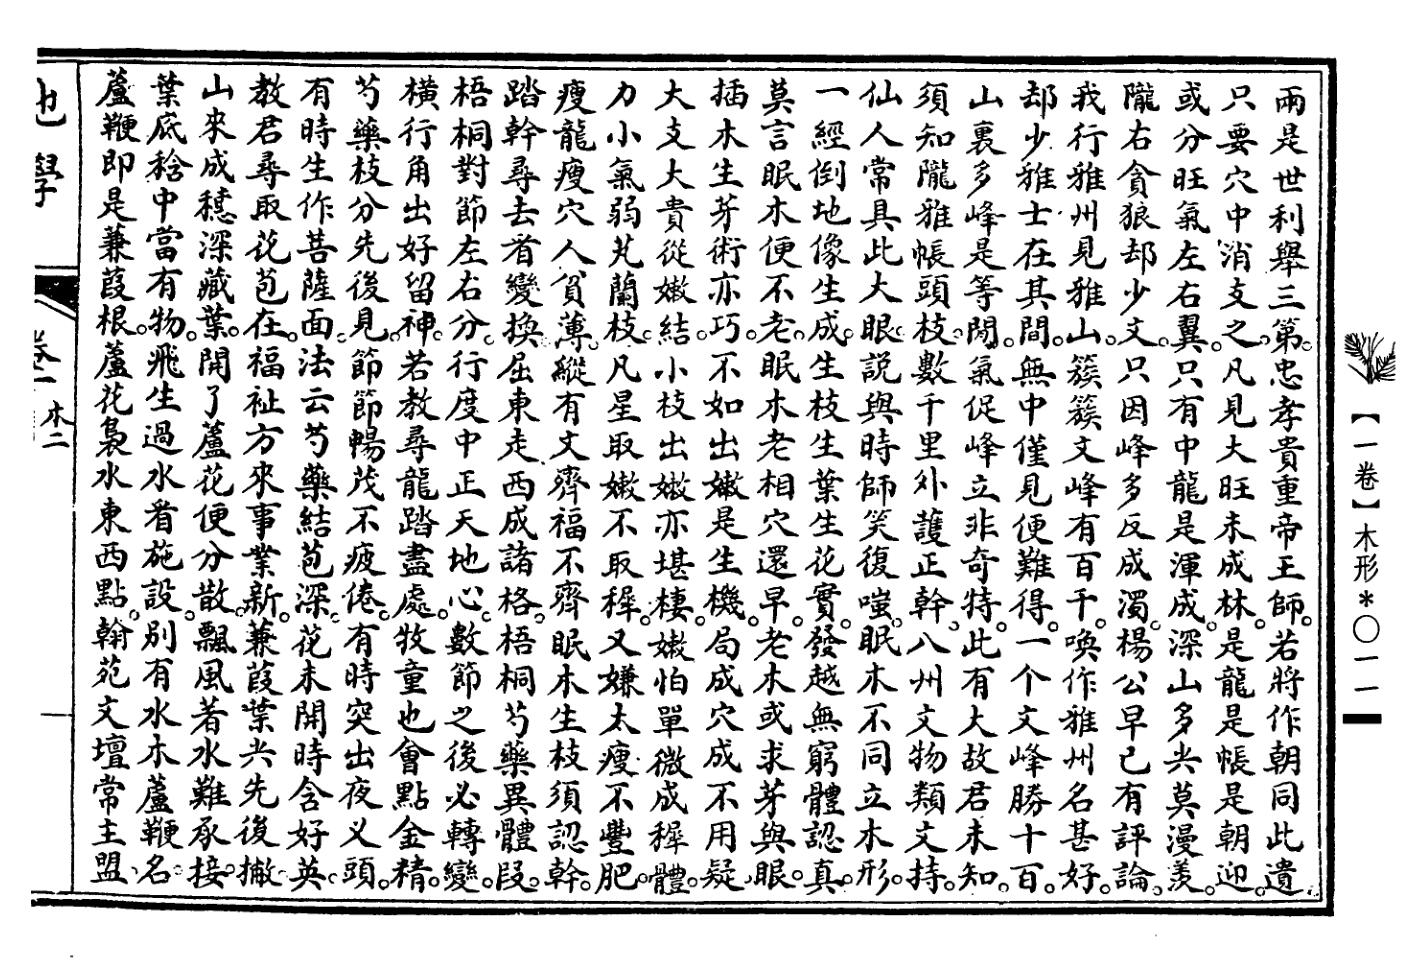 兩是世利舉三第忠孝貴重帝王師若將作朝同此遺
只要穴中消支之凡見大旺未成林是龍是帳是朝迎
或分旺氣左右翼只有中龍是渾成深山多尖莫漫羡
隴右貪狼却少文只因峰多反成濁楊公早已有評論
我行雅州見雅山簇簇文峰有百千喚作雅州名甚好
却少雅士在其間無中僅見便難得一个文峰勝十百
山裏多峰是等閒氣促峰立非奇特此有大故君未知
須知隴雅帳頭枝數千里外護正幹八州文物類文持
仙人常具此大眼説與時師笑復嗤眠木不同立木形
一經倒地像生成生枝生葉生花實發越無窮體認真
莫言眠木便不老眠木老相穴還早老木或求芽與眼
插木生芽術亦巧不如出嫩是生機局成穴成不用疑
大支大貴從嫩結小枝出嫩亦堪棲嫩怕單微成稺體
力小氣弱芄蘭枝凡星取嫩不取稺又嫌太瘦不豐肥
瘦龍瘦穴人貧薄縱有文齊福不齊眠木生枝須認幹
踏幹尋去看變換屈東走西成諸格梧桐芍藥異體段
梧桐對節左右分行度中正天地心數節之後必轉變
橫行角出好留神若教尋龍踏盡處牧童也會點金精
芍藥枝分先後見節節暢茂不疲倦有時突出夜乂頭
有時生作菩薩面法云芍藥結苞深花未開時含好英
教君尋取花苞在福祉方來事業新蒹葭葉尖先後撇
山來成穗深藏葉開了蘆花便分散飄風著水難承接
葉底稔中當有物飛生過水看施設別有水木蘆鞭名
蘆鞭即是蒹葭根蘆花裊水東西點翰苑文壇常主盟
地學
卷一 木二
【一卷】木形＊〇一一